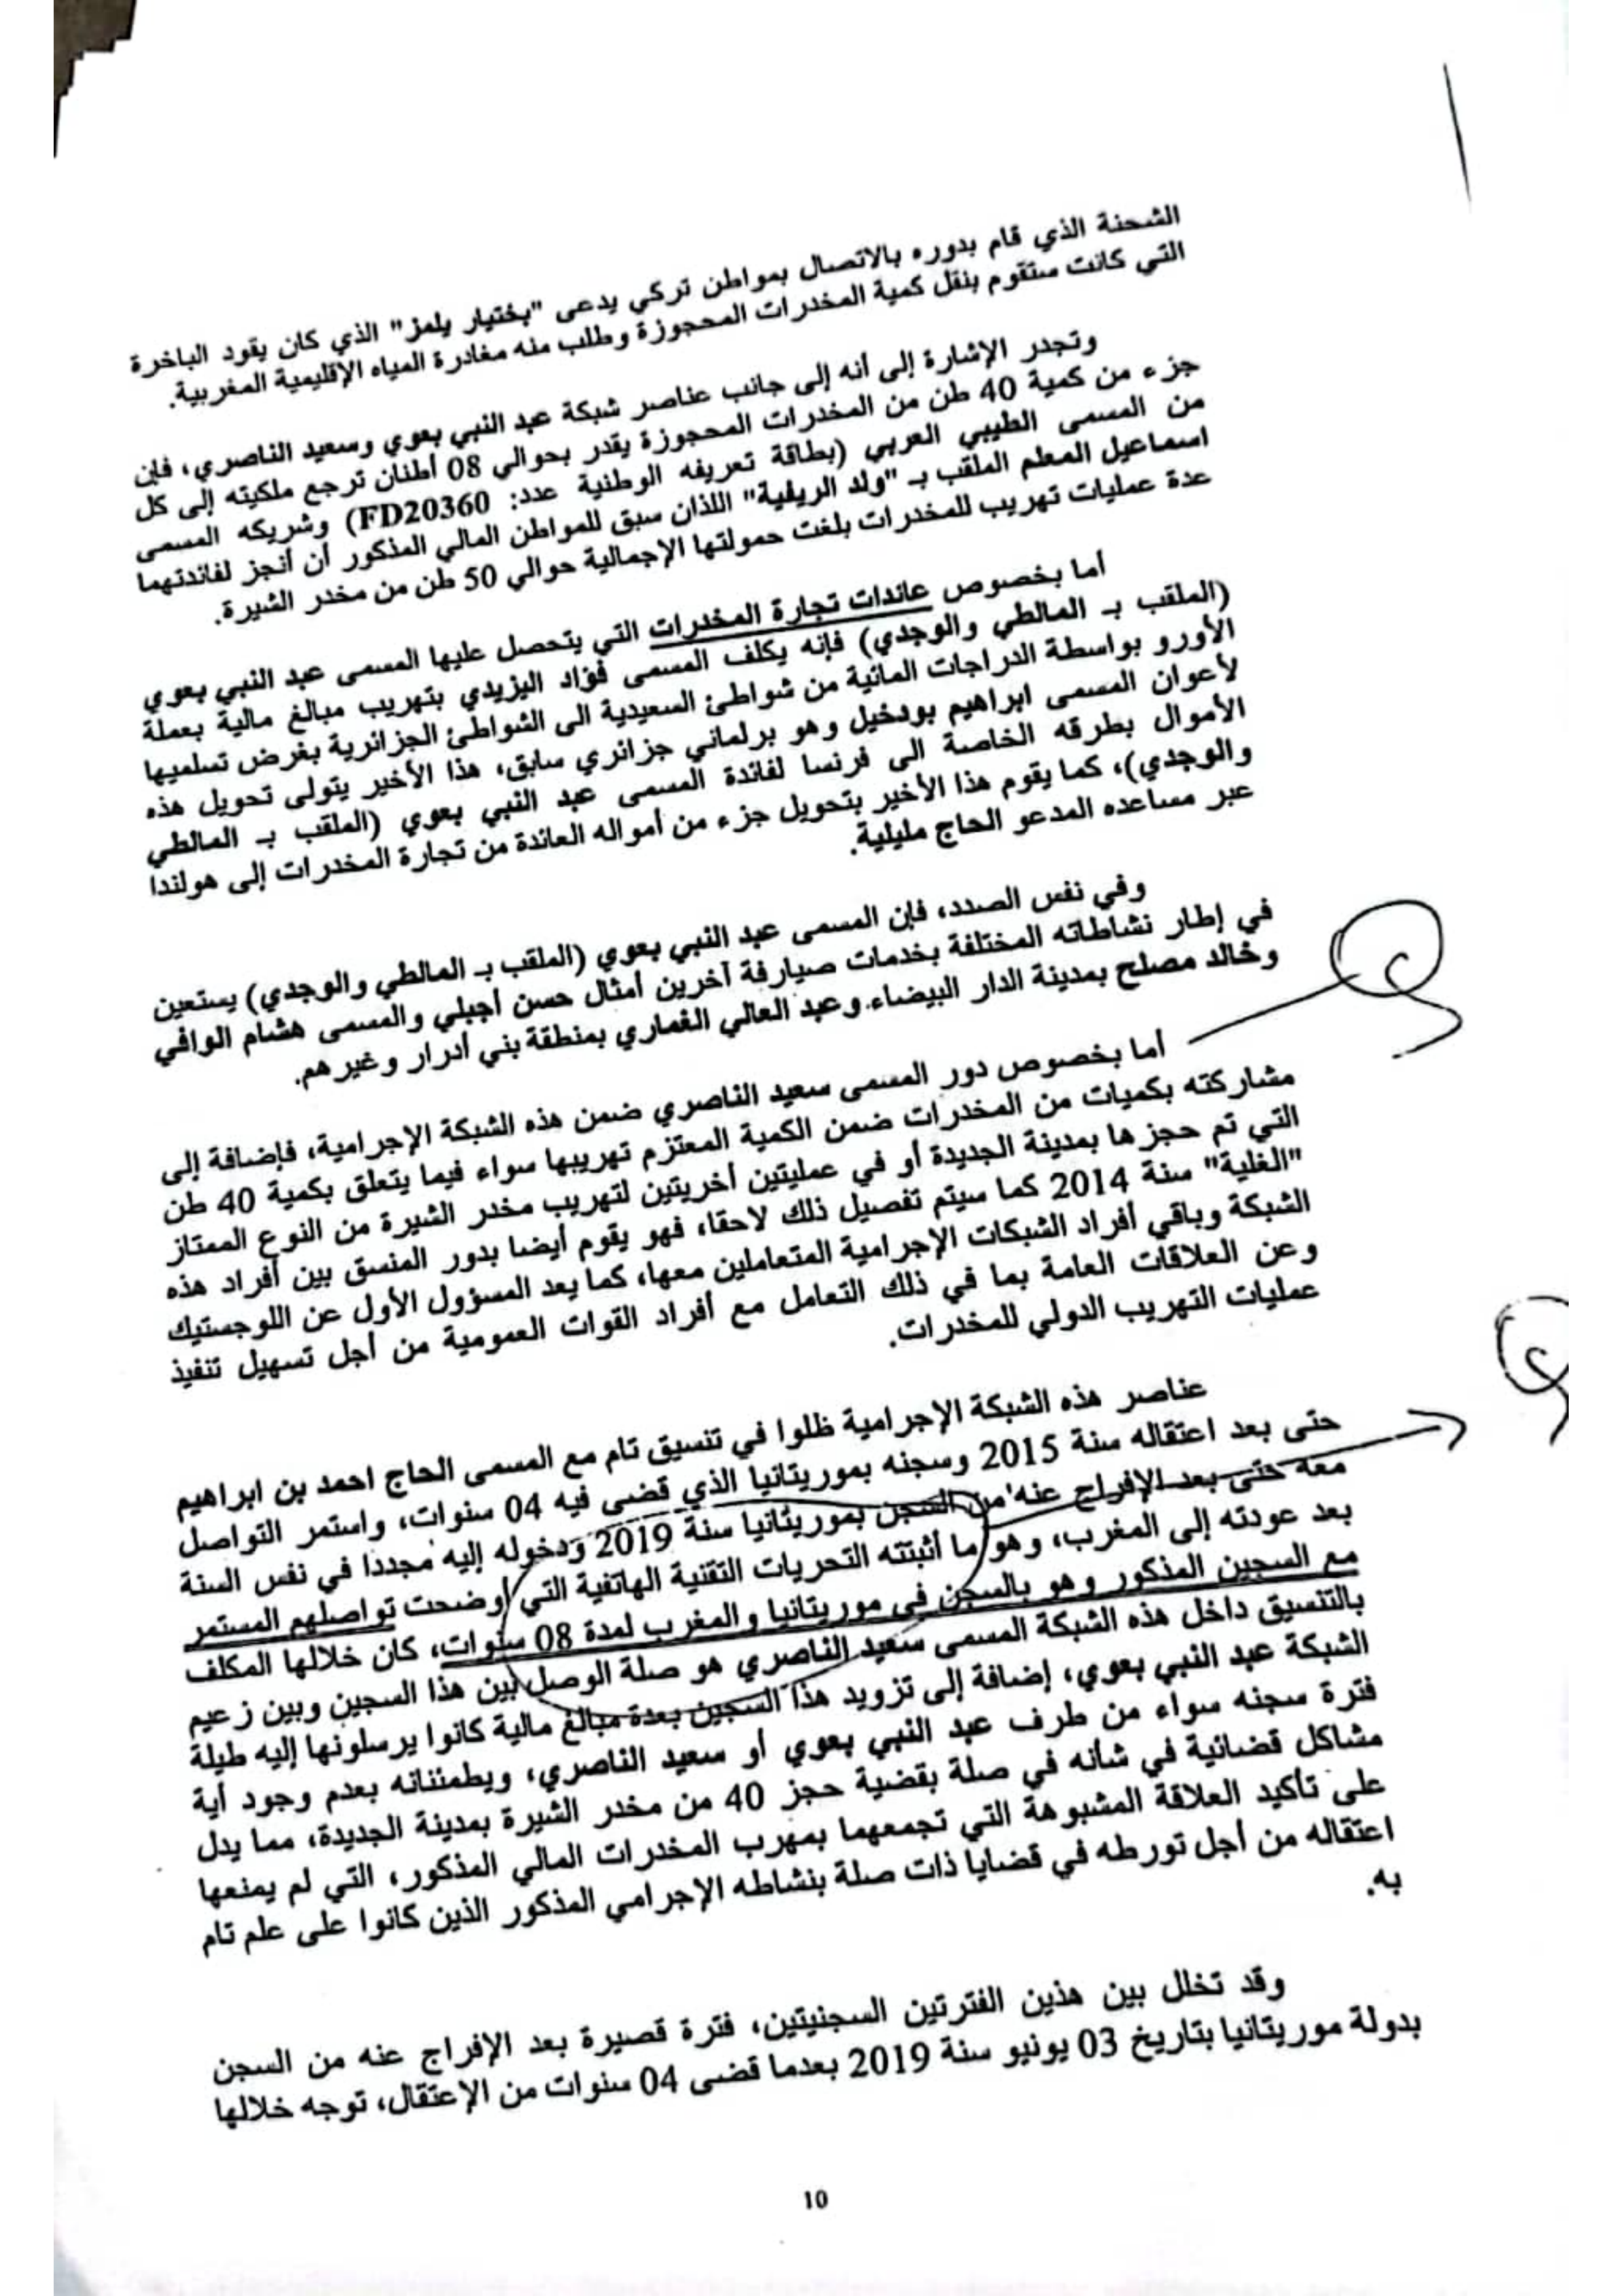 الشحنة الذي قام بدوره بالاتصال بمواطن تركي يدعى "بختيار يلمز" الذي كان يقود الباخرة
التي كانت ستقوم بنقل كمية المخدرات المحجوزة وطلب منه مغادرة المياه الإقليمية المغربية.
وتجدر الإشارة إلى أنه إلى جانب عناصر شبكة عبد النبي بعوي وسعيد الناصري، فإن
جزء من كمية 40 طن من المخدرات المحجوزة يقدر بحوالي 08 أطنان ترجع ملكيته إلى كل
من المسمى الطيبي العربي (بطاقة تعريفه الوطنية عدد: FD20360) وشريكه المسمى
اسماعيل المعلم الملقب بـ "ولد الريفية" اللذان سبق للمواطن المالي المذكور أن أنجز لفائدتهما
عدة عمليات تهريب للمخدرات بلغت حمولتها الإجمالية حوالي 50 طن من مخدر الشيرة.
أما بخصوص عائدات تجارة المخدرات التي يتحصل عليها المسمى عبد النبي بعوي
(الملقب بـ المالطي والوجدي) فإنه يكلف المسمى فؤاد اليزيدي بتهريب مبالغ مالية بعملة
الأورو بواسطة الدراجات المائية من شواطئ السعيدية الى الشواطئ الجزائرية بغرض تسلميها
لأعوان المسمى ابراهيم بودخيل وهو برلماني جزائري سابق، هذا الأخير يتولى تحويل هذه
الأموال بطرقه الخاصة الى فرنسا لفائدة المسمى عبد النبي بعوي (الملقب بـ المالطي
والوجدي)، كما يقوم هذا الأخير بتحويل جزء من أمواله العائدة من تجارة المخدرات إلى هولندا
عبر مساعده المدعو الحاج مليلية.
وفي نفس الصدد، فإن المسمى عبد النبي بعوي (الملقب بـ المالطي والوجدي) يستعين
في إطار نشاطاته المختلفة بخدمات صيارفة آخرين أمثال حسن أجبلي والمسمى هشام الوافي
وخالد مصلح بمدينة الدار البيضاء وعبد العالي الغماري بمنطقة بني أدرار وغيرهم.
أما بخصوص دور المسمى سعيد الناصري ضمن هذه الشبكة الإجرامية، فإضافة إلى
مشاركته بكميات من المخدرات ضمن الكمية المعتزم تهريبها سواء فيما يتعلق بكمية 40 طن
التي تم حجزها بمدينة الجديدة أو في عمليتين أخريتين لتهريب مخدر الشيرة من النوع الممتاز
"الغلية" سنة 2014 كما سيتم تفصيل ذلك لاحقا، فهو يقوم أيضا بدور المنسق بين أفراد هذه
الشبكة وباقي أفراد الشبكات الإجرامية المتعاملين معها، كما يعد المسؤول الأول عن اللوجستيك
وعن العلاقات العامة بما في ذلك التعامل مع أفراد القوات العمومية من أجل تسهيل تنفيذ
عمليات التهريب الدولي للمخدرات.
عناصر هذه الشبكة الإجرامية ظلوا في تنسيق تام مع المسمى الحاج احمد بن ابراهيم
حتى بعد اعتقاله سنة 2015 وسجنه بموريتانيا الذي قضى فيه 04 سنوات، واستمر التواصل
معه حتى بعد الإفراج عنه من السجن بموريتانيا سنة 2019 ودخوله إليه مجددا في نفس السنة
بعد عودته إلى المغرب، وهو ما أثبتته التحريات التقنية الهاتفية التي أوضحت تواصلهم المستمر
مع السجين المذكور وهو بالسجن في موريتانيا والمغرب لمدة 08 سنوات، كان خلالها المكلف
بالتنسيق داخل هذه الشبكة المسمى سعيد الناصري هو صلة الوصل بين هذا السجين وبين زعيم
الشبكة عبد النبي بعوي، إضافة إلى تزويد هذا السجين بعدة مبالغ مالية كانوا يرسلونها إليه طيلة
فترة سجنه سواء من طرف عبد النبي بعوي أو سعيد الناصري، ويطمئنانه بعدم وجود أية
مشاكل قضائية في شأنه في صلة بقضية حجز 40 من مخدر الشيرة بمدينة الجديدة، مما يدل
على تأكيد العلاقة المشبوهة التي تجمعهما بمهرب المخدرات المالي المذكور، التي لم يمنعها
اعتقاله من أجل تورطه في قضايا ذات صلة بنشاطه الإجرامي المذكور الذين كانوا على علم تام
به.
وقد تخلل بين هذين الفترتين السجنيتين، فترة قصيرة بعد الإفراج عنه من السجن
بدولة موريتانيا بتاريخ 03 يونيو سنة 2019 بعدما قضى 04 سنوات من الإعتقال، توجه خلالها
10